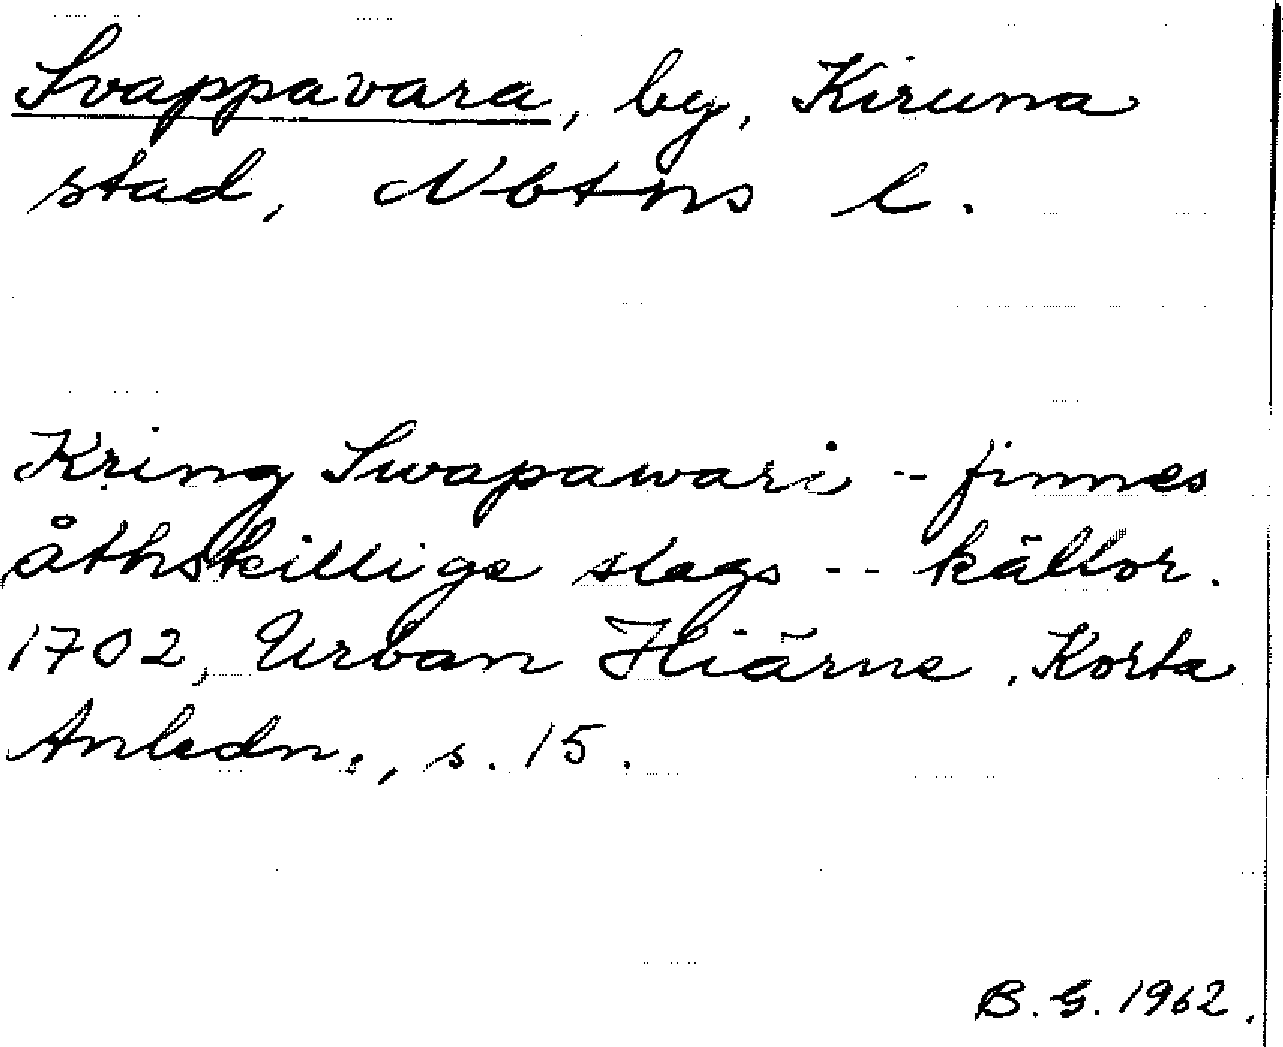 Svappavara, by, Kiruna
stad, Nbtns l.
Kring Swapawari -- finnes
åthskillige slags -- källor.
1702, Urban Hiärne, Korta
Anledn., s. 15.
B. G. 1962.